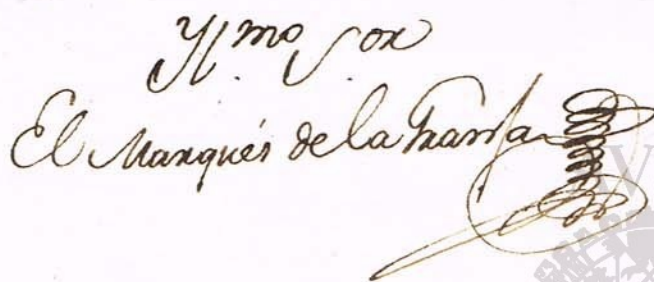 Yl.mo S.or
El Marqués de la Granja